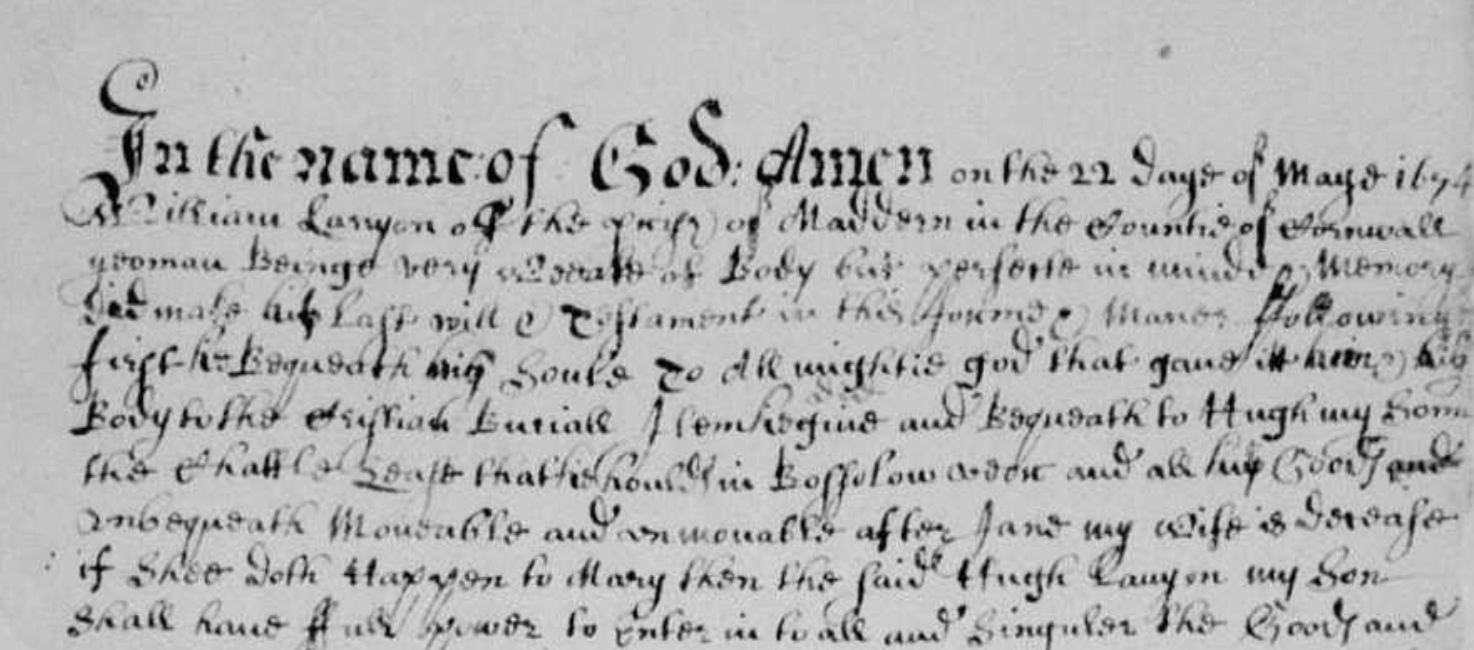 In the name of God: Amen on the 22 daye of Maye 1674
William Lanyon off the of Maddern in the Countie of Cornwall
yeoman Beinge very weeake of Body but perfecte in minde & Memory
did make his Last will & Testament in this forme & Maner ffollowing
first he Bequeath his Soule To All mightie god that gaue itt him & his
Body to the Cristian Buriall Item he giue and Bequeath to Hugh my Sonn
the Chattle Lease that he houlds in Bossolow and all his Goods and
vnbequeath Moueable and vnmouable after Jane my wife is decease
if Shee doth Happen to Mary then the said Hugh Lanyon my Son
Shall haue ffull power to Enter in to all and Singuler The Goods and